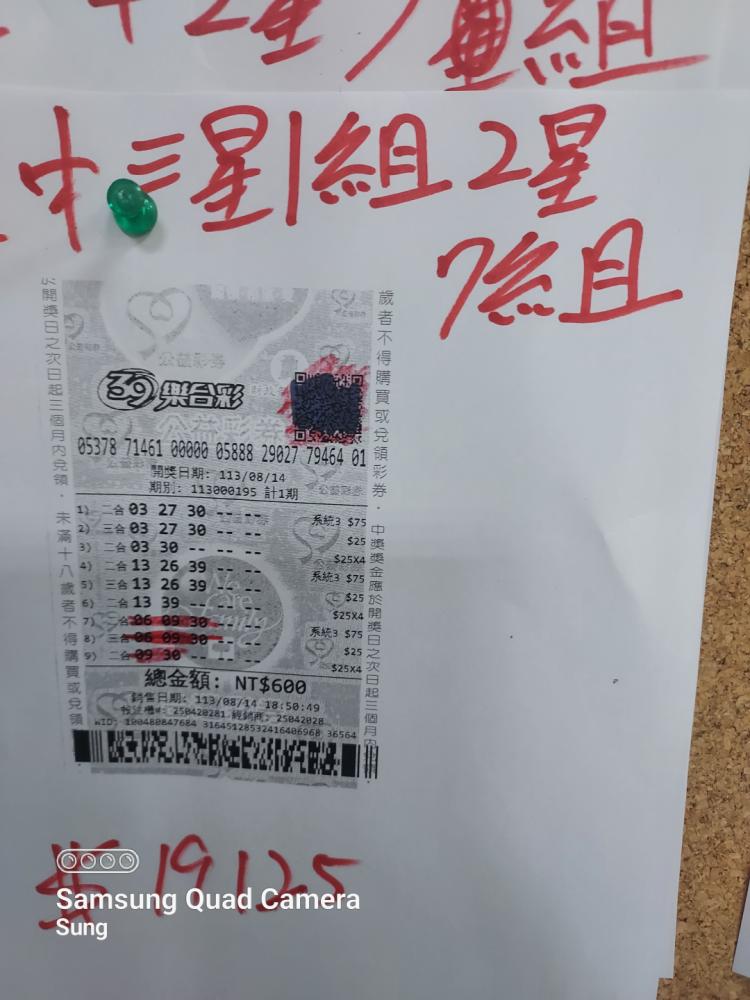 2星
組
中三星1組2星
7組
39樂合彩
公益彩券
05378 71461 00000 05888 29027 79464 01
開獎日期: 113/08/14
期別: 113000195 計1期
1) 二合 03 27 30 -- -- -- 系統3 $75
2) 三合 03 27 30 -- -- -- $25
3) 二合 03 30 -- -- -- $25X4
4) 二合 13 26 39 -- -- -- 系統3 $75
5) 三合 13 26 39 -- -- -- $25
6) 二合 13 39 -- -- -- $25X4
7) 二合 06 09 30 -- -- -- 系統3 $75
8) 三合 06 09 30 -- -- -- $25
9) 二合 09 30 -- -- -- $25X4
總金額: NT$600
銷售日期: 113/08/14 18:50:49
投注機#: 250420281 經銷商: 25042028
WID: 100480847684 31645128532416406968 36564
於開獎日之次日起三個月內兌領。未滿十八歲者不得購買或兌領
歲者不得購買或兌領彩券。中獎獎金應於開獎日之次日起三個月內
$19125
Samsung Quad Camera
Sung